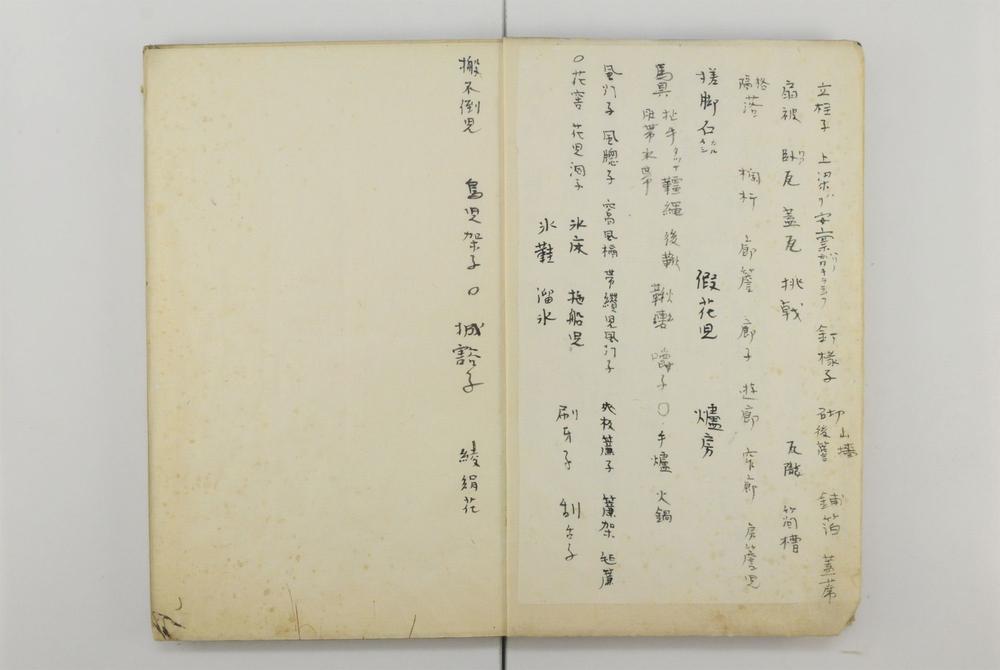 立柱子 上梁 釘椽子 砌山墻 後簷 鋪箔 蓋席
扇被 臥瓦 蓋瓦 挑戟 瓦隴 筒槽
隔落 格 欄杆 廊簷 廊子 遊廊 窄廊 房簷児
搓脚石 假花児 爐房
馬具 扯手 韁繩 後鞦 鞦轡 嚼子 〇 手爐 火鍋
風门子 風牕子 窩風槅 帶纘児風门子 夾板簾子 簾架 毡簾
〇花窖 花児洞子 氷床 拖船児
氷鞋 溜氷 刷牙子 刮舌子
搬不倒児 鳥児架子 〇 綾絹花